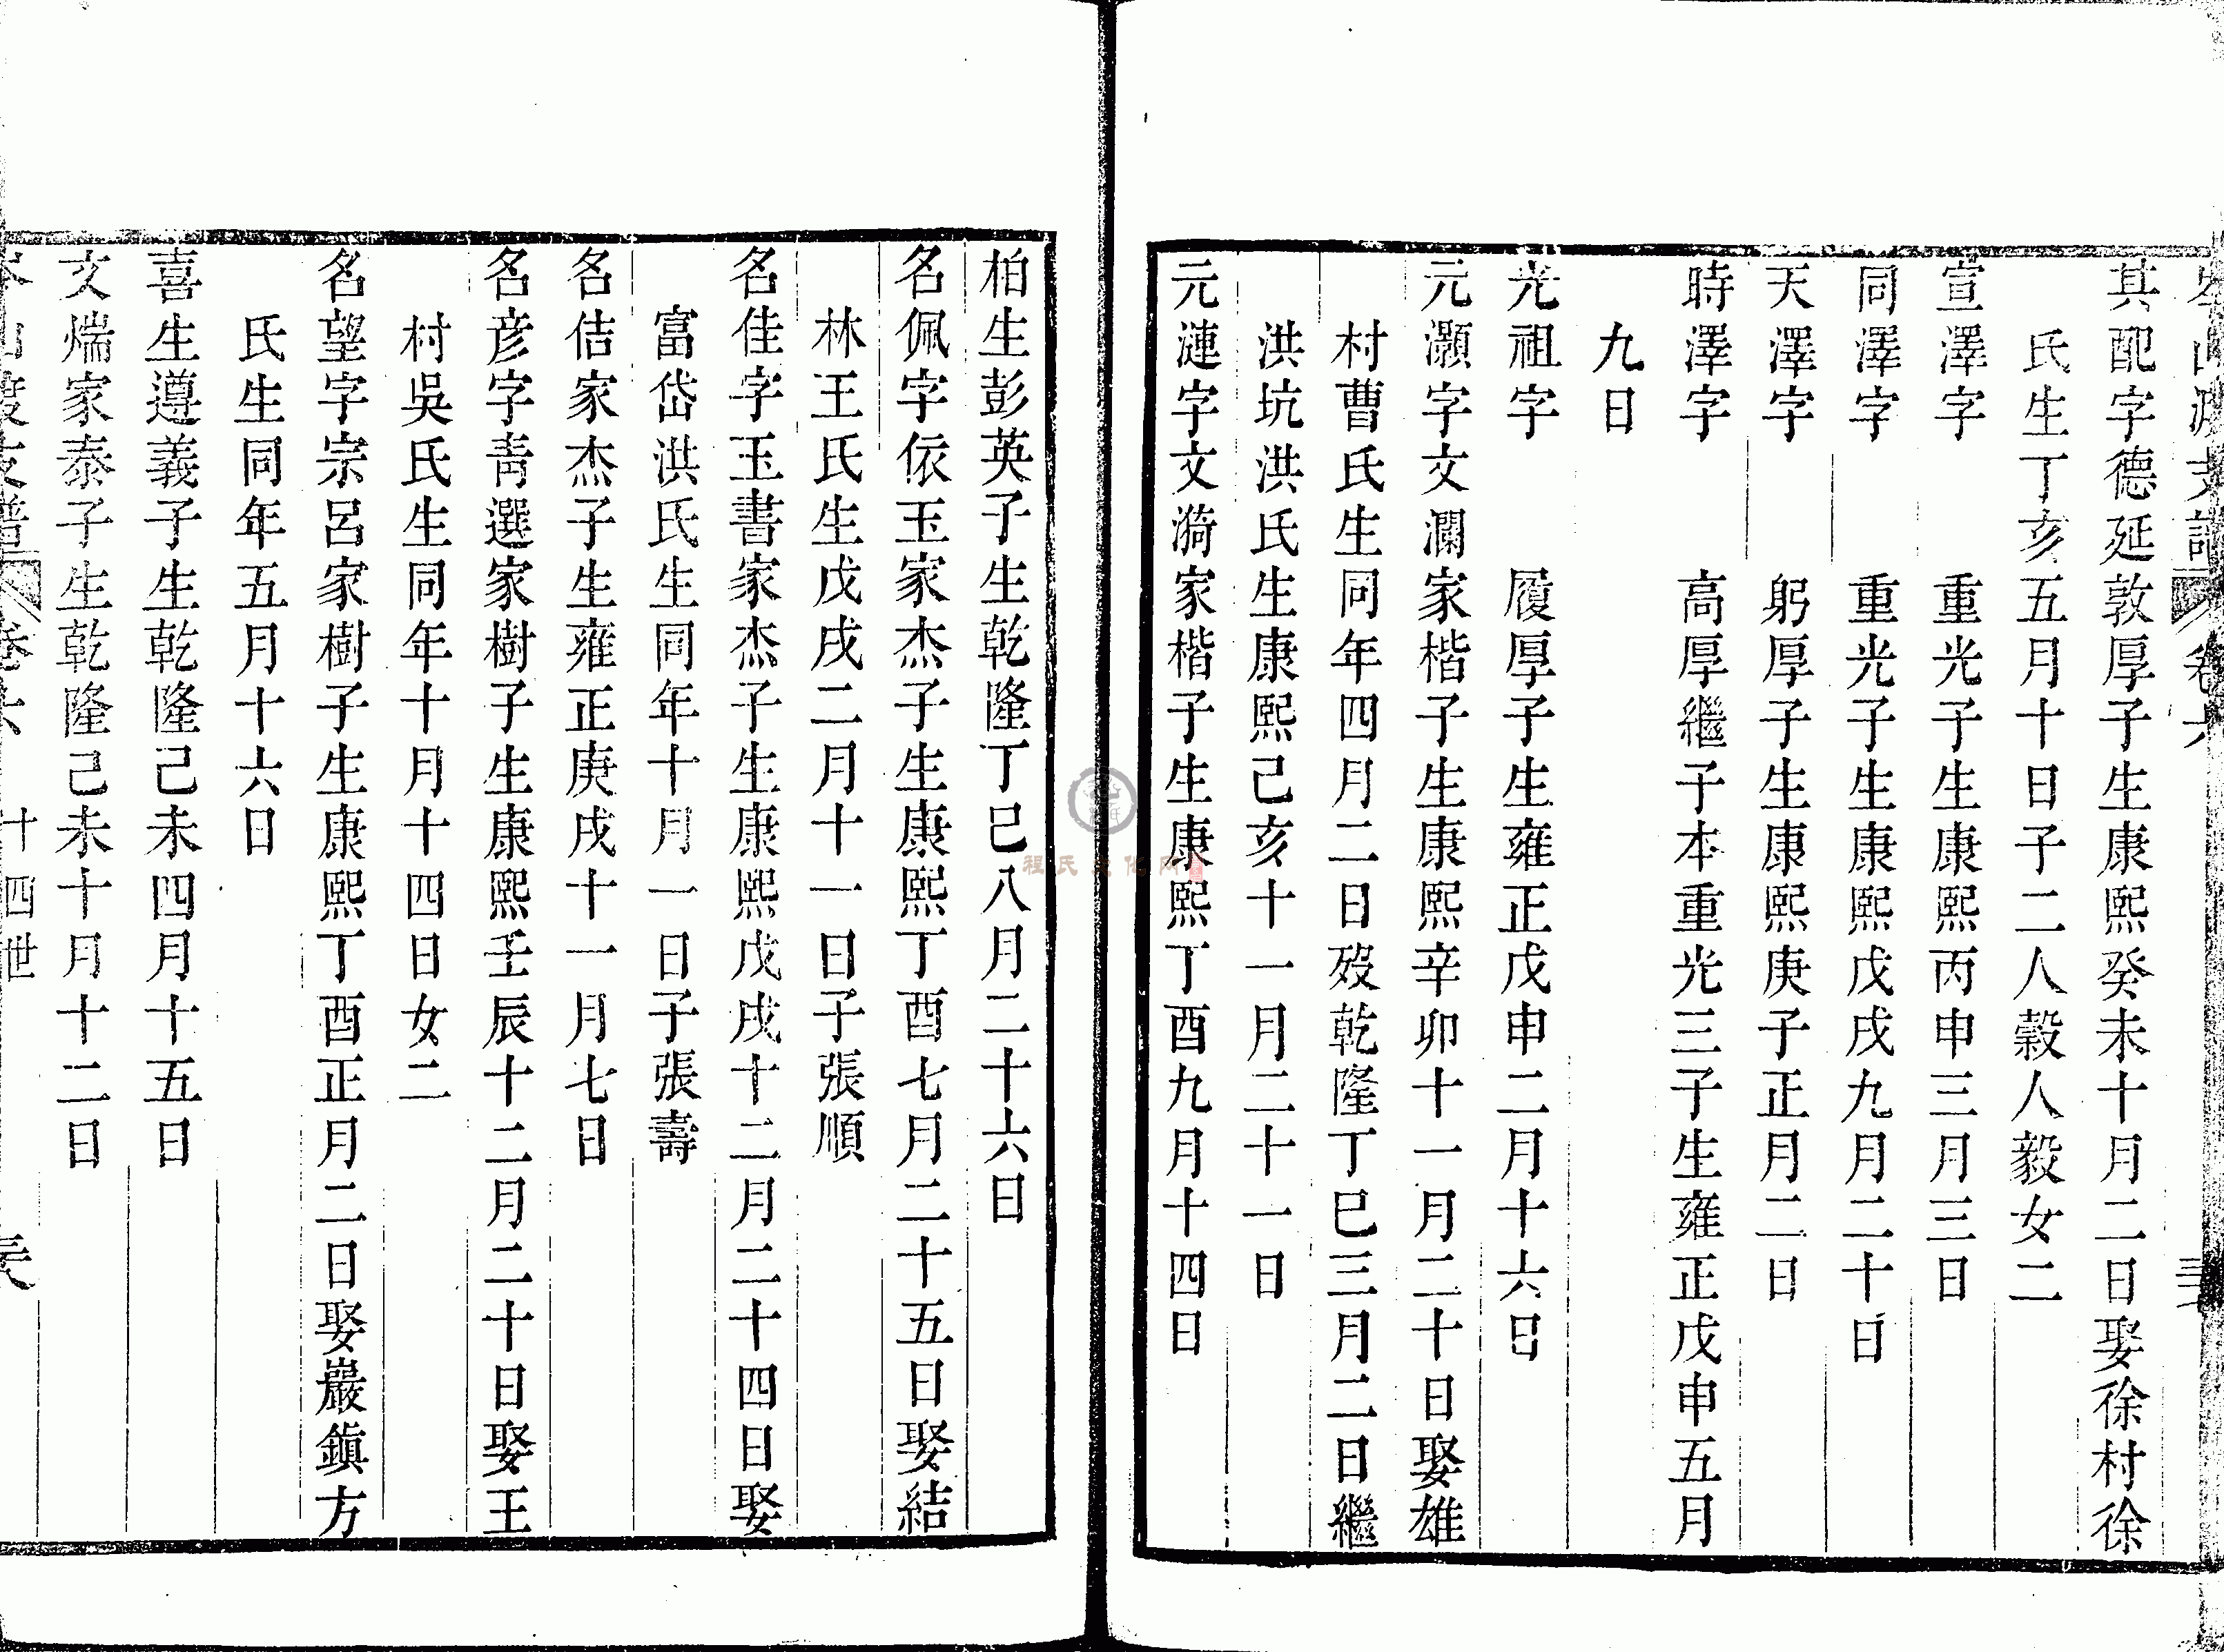 卷六
其配字德延敦厚子生康熙癸未十月二日娶徐村徐
氏生丁亥五月十日子二人穀人毅女二
宣澤字　重光子生康熙丙申三月三日
同澤字　重光子生康熙戊戌九月二十日
天澤字　躬厚子生康熙庚子正月二日
時澤字　高厚繼子本重光三子生雍正戊申五月
九日
光祖字　履厚子生雍正戊申二月十六日
元灝字文瀾家楷子生康熙辛卯十一月二十日娶雄
村曹氏生同年四月二日歿乾隆丁巳三月二日繼
洪坑洪氏生康熙己亥十一月二十一日
元漣字文漪家楷子生康熙丁酉九月十四日
程氏文化网
柏生彭英子生乾隆丁巳八月二十六日
名佩字依玉家杰子生康熙丁酉七月二十五日娶結
林王氏生戊戌二月十一日子張順
名佳字玉書家杰子生康熙戊戌十二月二十四日娶
富岱洪氏生同年十月一日子張壽
名佶家杰子生雍正庚戌十一月七日
名彦字青選家樹子生康熙壬辰十二月二十日娶王
村吳氏生同年十月十四日女二
名望字宗呂家樹子生康熙丁酉正月二日娶巖鎮方
氏生同年五月十六日
喜生遵義子生乾隆己未四月十五日
文煓家泰子生乾隆己未十月十二日
支譜　卷六　十四世